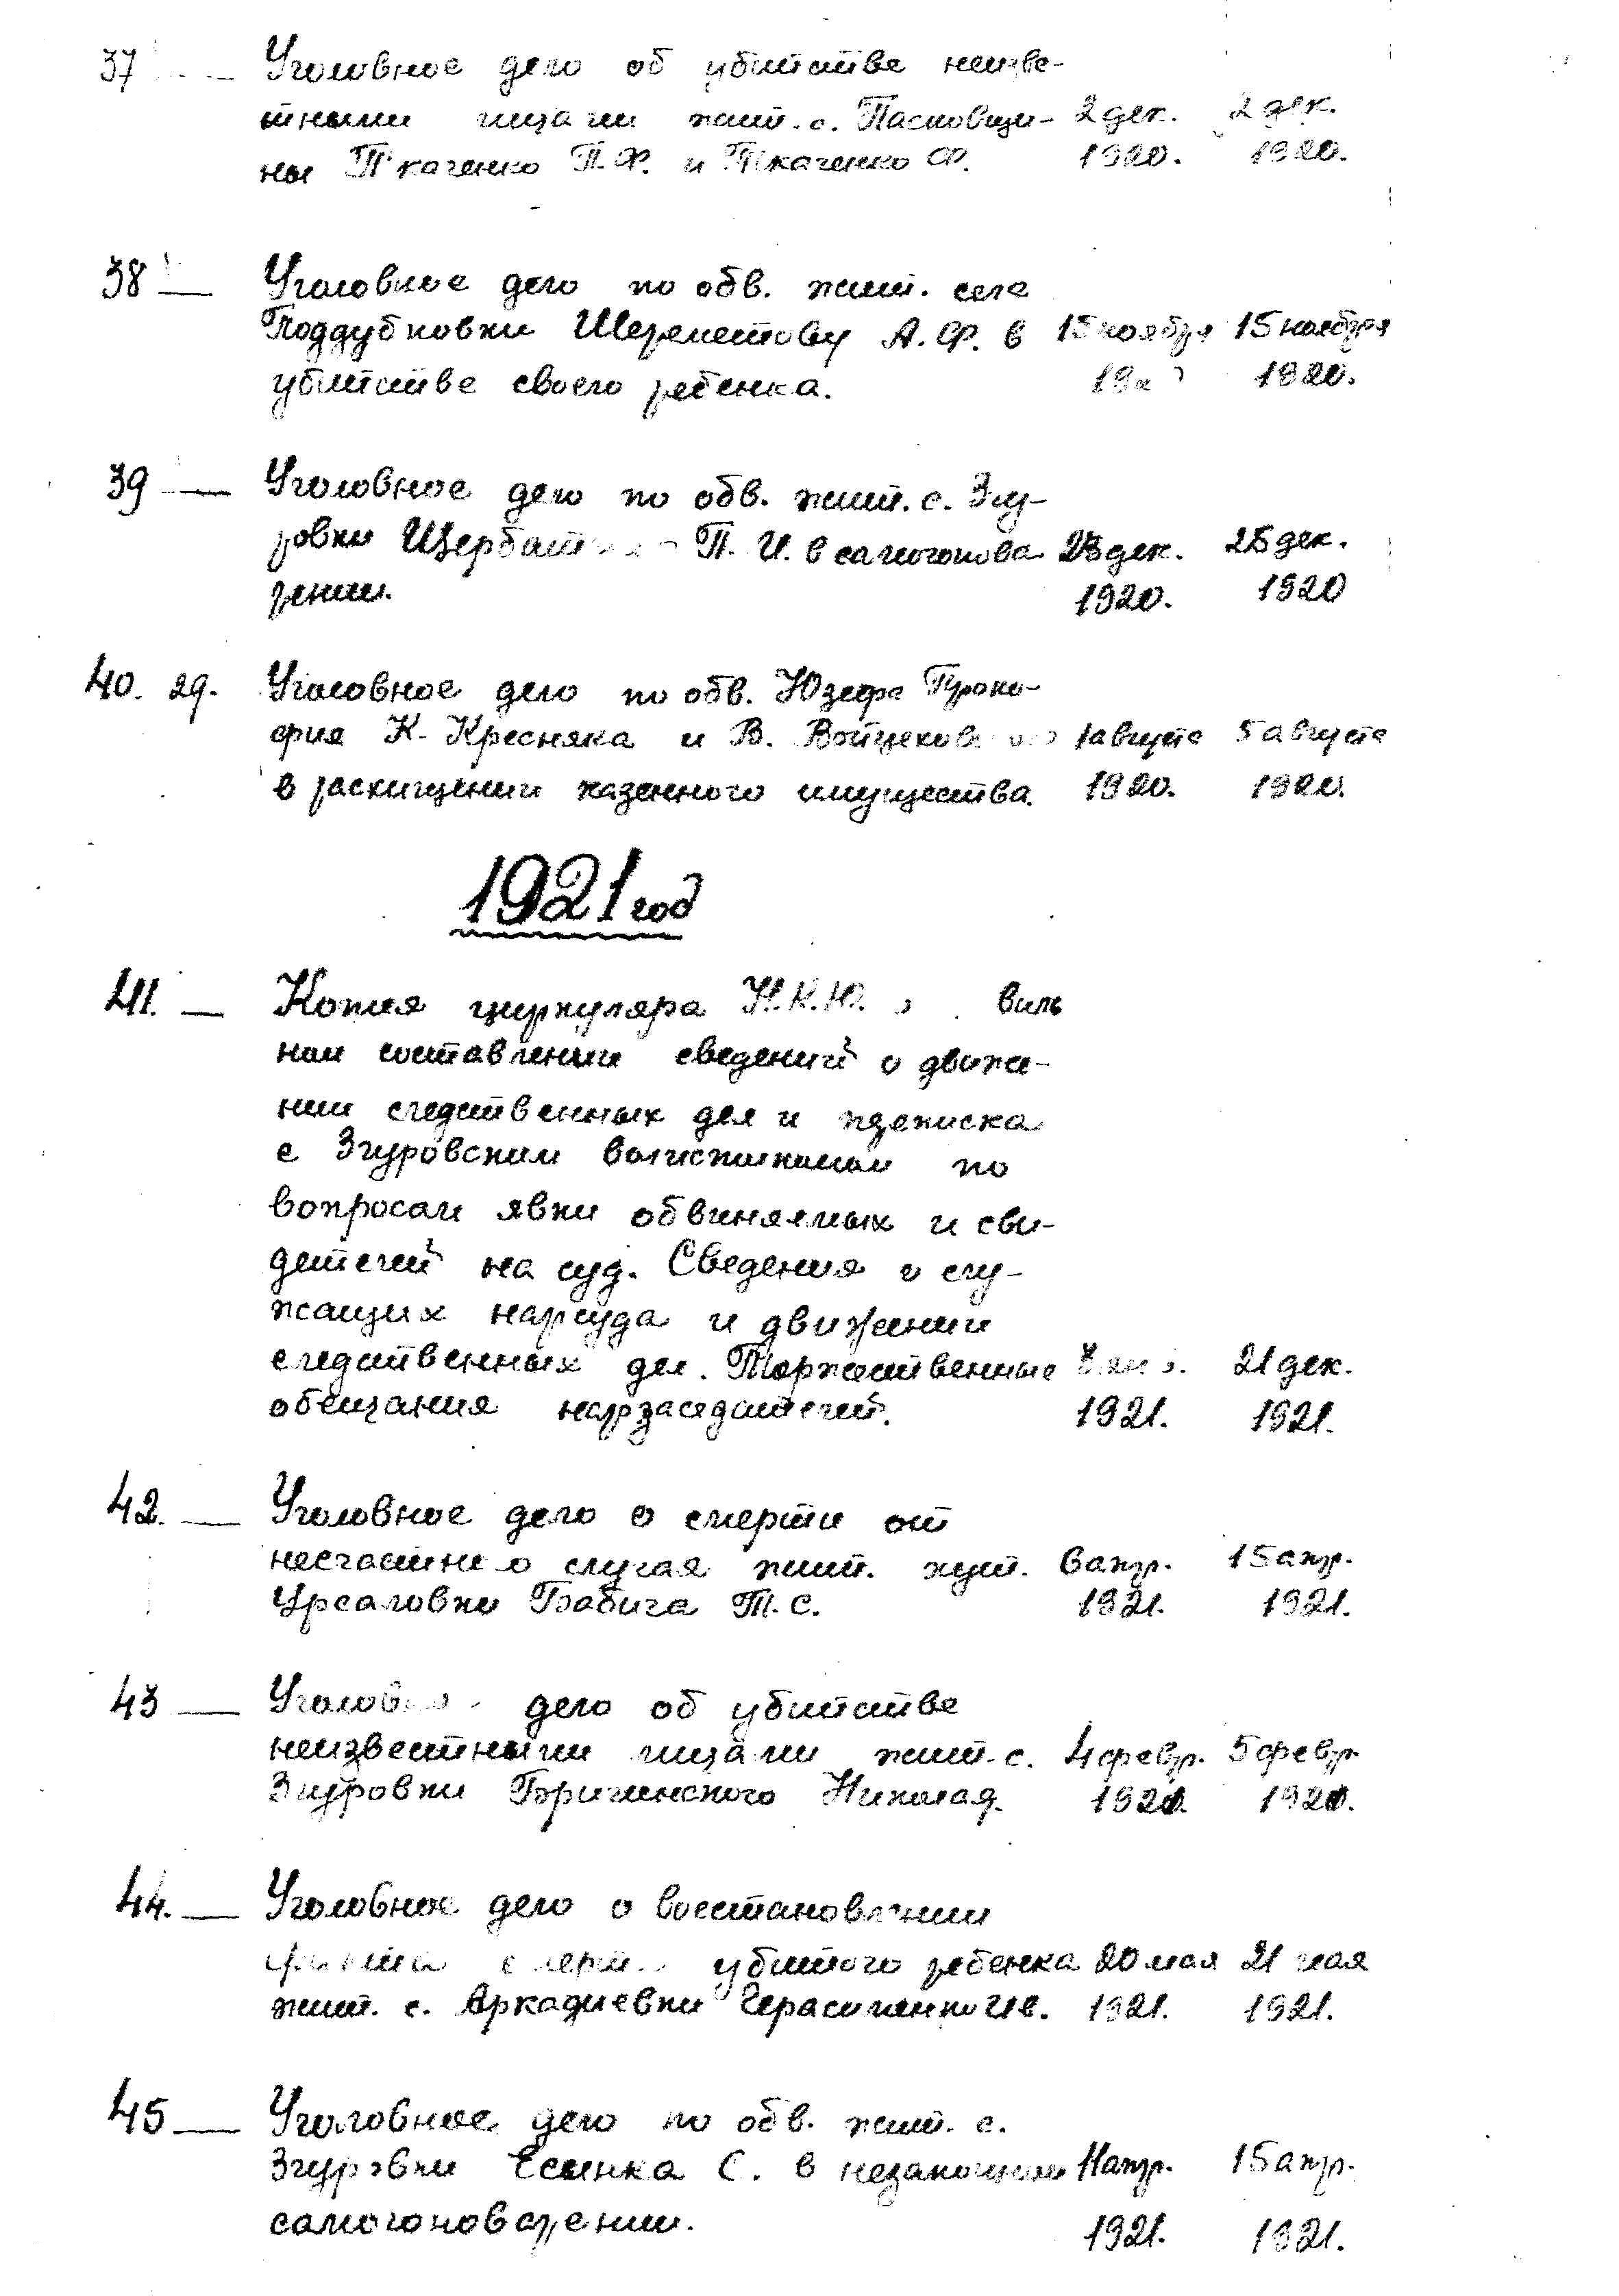 37 — Уголовное дело об убийстве неизве-
стными лицами жит. с. Пасковщи- 2 дек. 2 дек.
ны Ткаченко П.Ф. и Ткаченко Ф. 1920. 1920.
38 — Уголовное дело по обв. жит. села
Поддубновки Шереметову А.Ф. в 15 ноября 15 ноября
убийстве своего ребенка. 1920.
39 — Уголовное дело по обв. жит. с. Згу-
ровки П.И. в самогонова- дек. дек.
рении. 1920. 1920
40. 29. Уголовное дело по обв. Юзефа Проко-
фия К. Кресняка и В. 1 августа 5 августа
в расхищении казенного имущества. 1920. 1920.
1921 год
41. — Копия циркуляра Н.К.Ю. виль
ном составлении сведений о движе-
нии следственных дел и переписка
с Згуровским волисполкомом по
вопросам явки обвиняемых и сви-
детелей на суд. Сведения о слу-
жащих нарсуда и движении
следственных дел. Торжественные 21 дек.
обещания нарзаседателей. 1921. 1921.
42. — Уголовное дело о смерти от
несчастного случая жит. хут. 6 апр. 15 апр.
Урсаловки Бабича Т.С. 1921. 1921.
43 — дело об убийстве
неизвестными лицами жит. с. 4 февр. 5 февр.
Згуровки Николая.
44. — Уголовное дело о восстановлении
убитого ребенка 20 мая 21 мая
жит. с. Аркадиевки Герасименко Ив. 1921. 1921.
45 — Уголовное дело по обв. жит. с.
Згуровки Есинка С. в незаконном 11 апр. 15 апр.
самогоноварении. 1921. 1921.